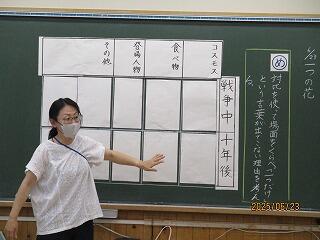 6/23 一つの花
め
対比を使って場面をくらべ、「一つだけ」
という言葉が出てこない理由を考え
る。
コスモス
食べ物
登場人物
その他
戦争中
十年後
2025/06/23